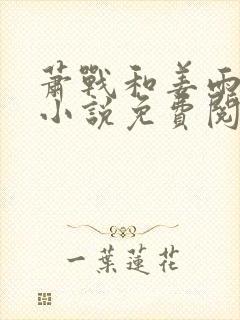 蕭戰和姜雨
小說免費閱
一葉蓮花